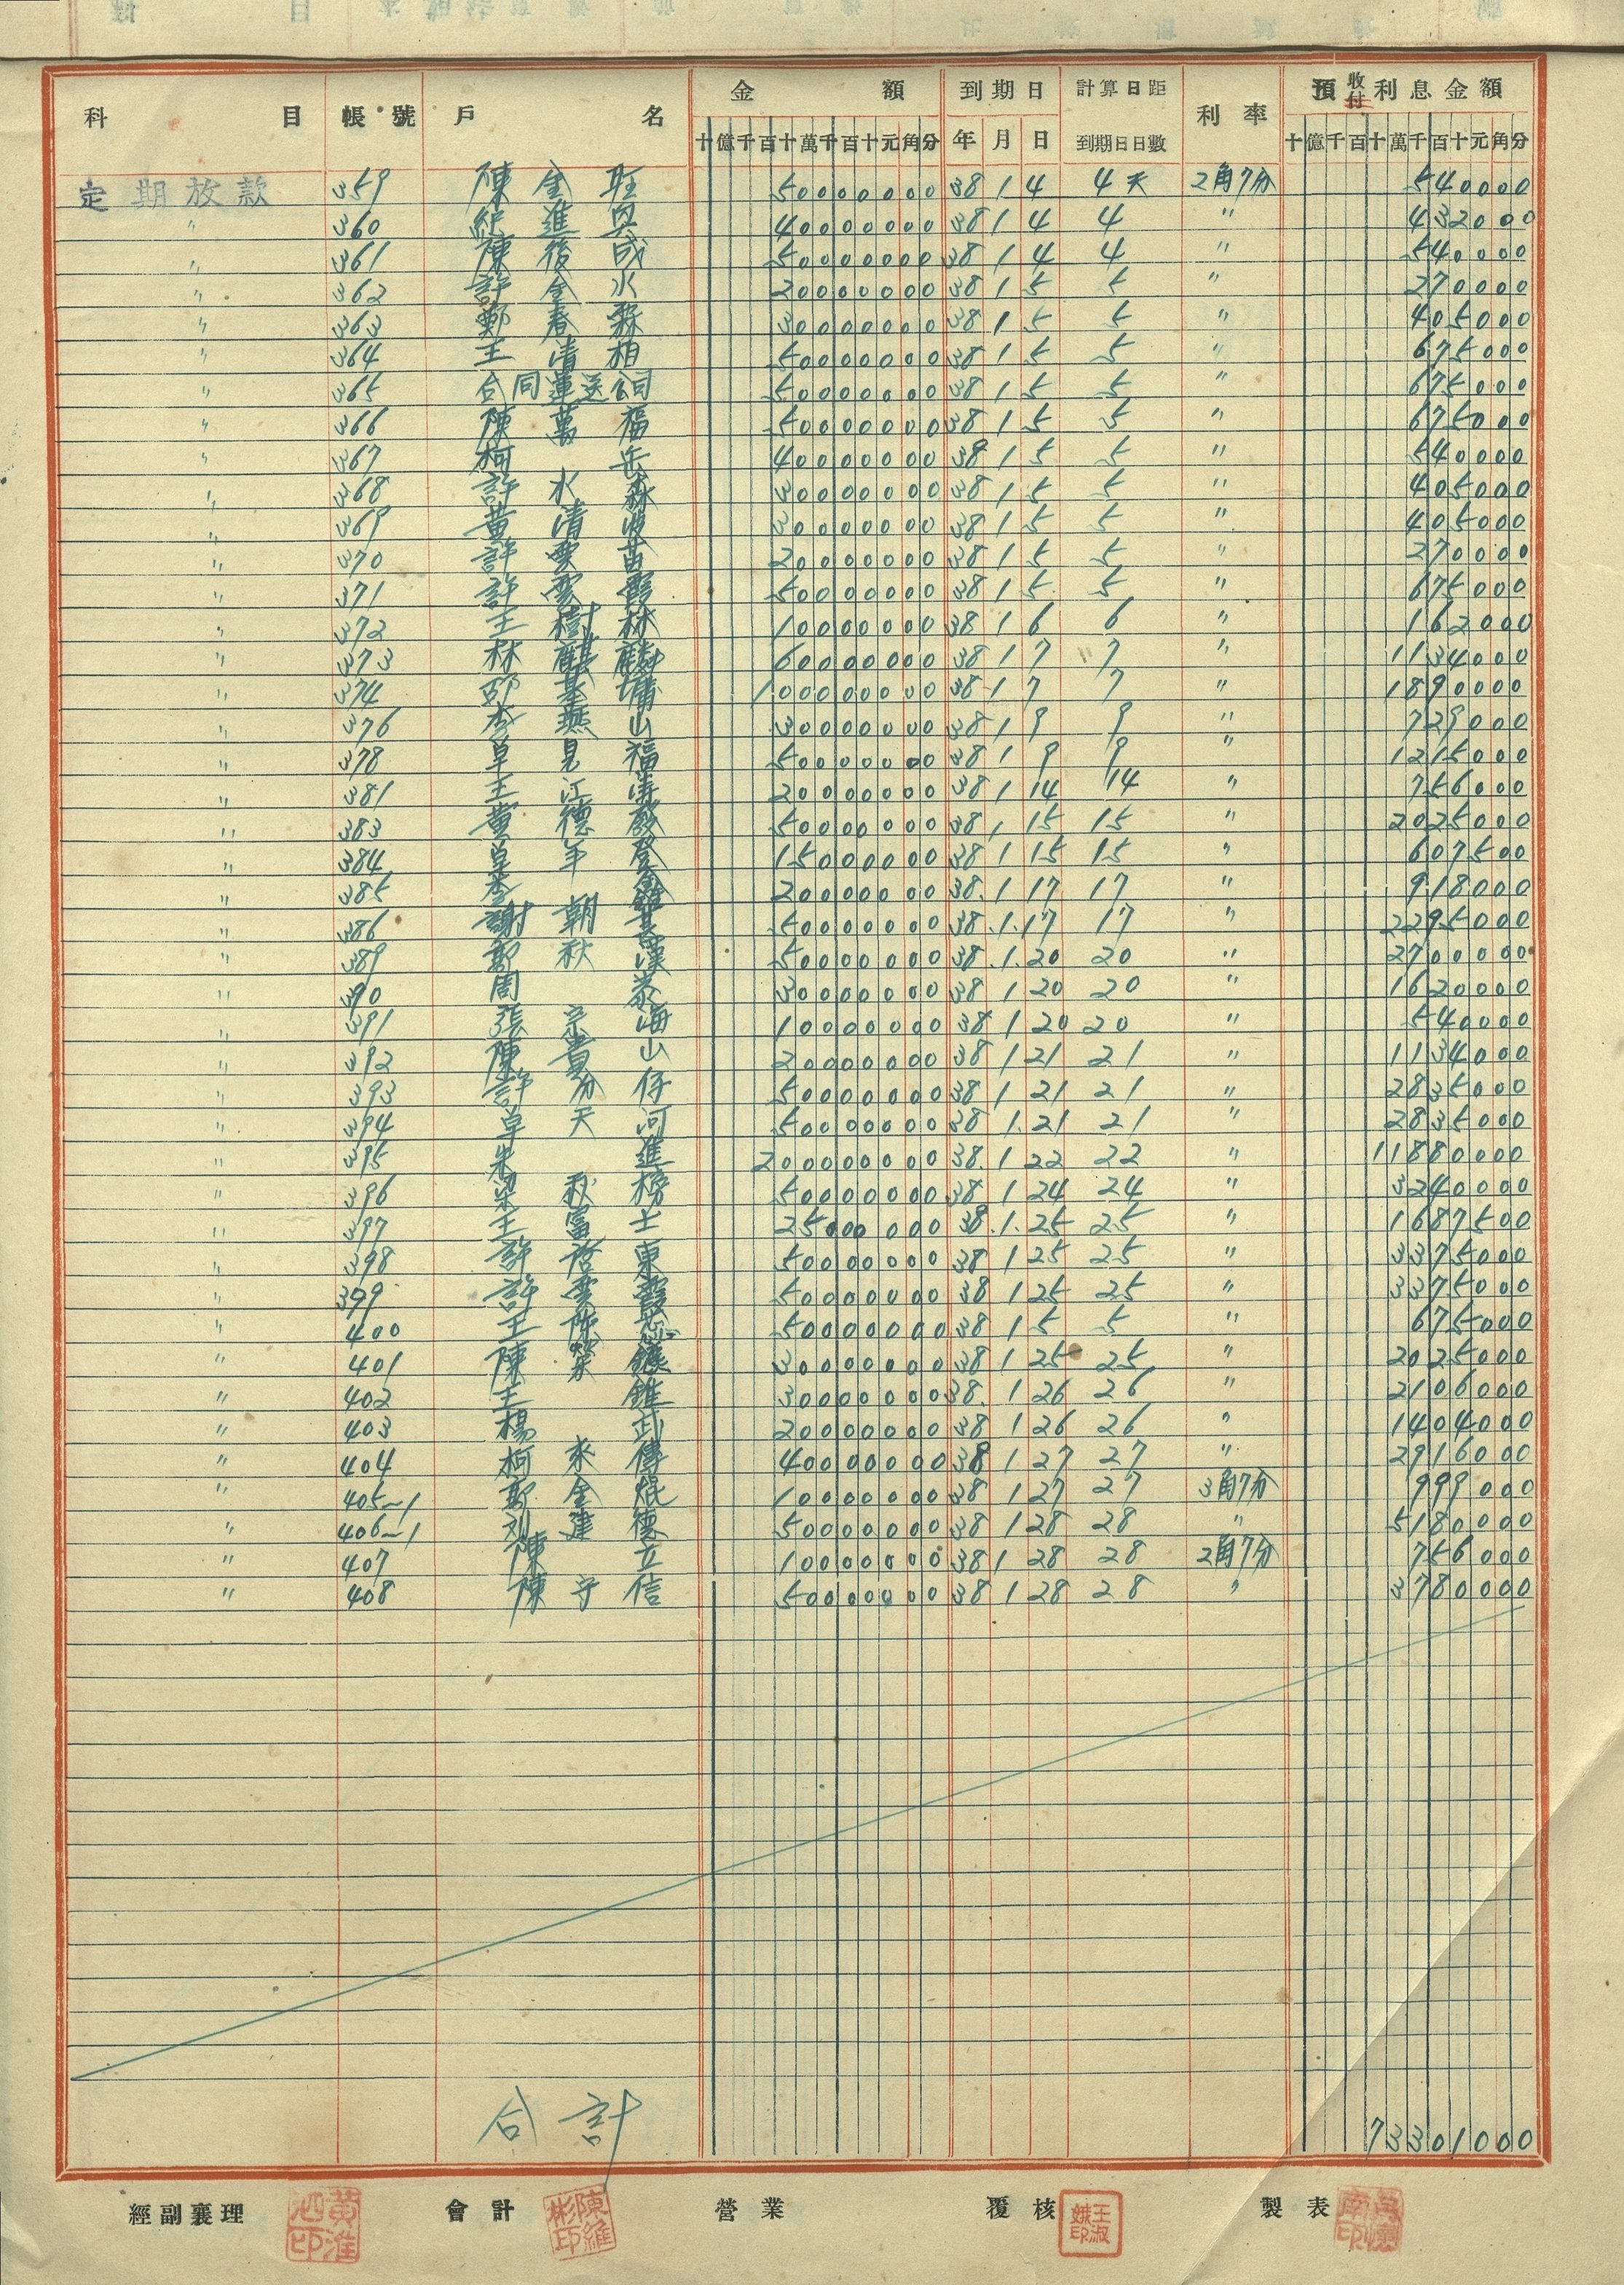 科目 帳號 戶名 金額 到期日 計算日距到期日日數 利率 預收付利息金額
十億千百十萬千百十元角分 年 月 日 十億千百十萬千百十元角分
定期放款 359 陳金旺 50000000 38 1 4 4天 2角7分 540000
〃 360 紀進與 40000000 38 1 4 4 〃 432000
〃 361 陳後成 50000000 38 1 4 4 〃 540000
〃 362 許金水 20000000 38 1 5 5 〃 270000
〃 363 鄭春霖 30000000 38 1 5 5 〃 405000
〃 364 王清相 50000000 38 1 5 5 〃 675000
〃 365 合同運送公司 50000000 38 1 5 5 〃 675000
〃 366 陳萬福 50000000 38 1 5 5 〃 675000
〃 367 柯岳 40000000 38 1 5 5 〃 540000
〃 368 許水森 30000000 38 1 5 5 〃 405000
〃 369 黃清波 30000000 38 1 5 5 〃 405000
〃 370 許雲苗 20000000 38 1 5 5 〃 270000
〃 371 許雲霞 50000000 38 1 5 5 〃 675000
〃 372 王樹林 10000000 38 1 6 6 〃 162000
〃 373 林麒麟 60000000 38 1 7 7 〃 1134000
〃 374 邱基墉 100000000 38 1 7 7 〃 1890000
〃 376 李燕山 30000000 38 1 9 9 〃 729000
〃 378 卓見福 50000000 38 1 9 9 〃 1215000
〃 381 王江濤 20000000 38 1 14 14 〃 756000
〃 383 黃德發 50000000 38 1 15 15 〃 2025000
〃 384 卓年登 15000000 38 1 15 15 〃 607500
〃 385 李 20000000 38 1 17 17 〃 918000
〃 386 謝朝 50000000 38 1 17 17 〃 2295000
〃 389 郭秋漢 50000000 38 1 20 20 〃 2700000
〃 390 周 30000000 38 1 20 20 〃 1620000
〃 391 張宗海 10000000 38 1 20 20 〃 540000
〃 392 陳貴山 20000000 38 1 21 21 〃 1134000
〃 393 許分仔 50000000 38 1 21 21 〃 2835000
〃 394 卓天河 50000000 38 1 21 21 〃 2835000
〃 395 朱進 200000000 38 1 22 22 〃 11880000
〃 396 梁秋榜 50000000 38 1 24 24 〃 3240000
〃 397 王富士 25000000 38 1 25 25 〃 1687500
〃 398 許哲東 50000000 38 1 25 25 〃 3375000
〃 399 許雲霞 50000000 38 1 25 25 〃 3375000
〃 400 王陳 50000000 38 1 5 5 〃 675000
〃 401 陳榮鑲 30000000 38 1 25 25 〃 2025000
〃 402 王錐 30000000 38 1 26 26 〃 2106000
〃 403 楊武 20000000 38 1 26 26 〃 1404000
〃 404 柯來傳 40000000 38 1 27 27 〃 2916000
〃 405~1 郭金焜 10000000 38 1 27 27 3角7分 999000
〃 406~1 刘建德 50000000 38 1 28 28 〃 5180000
〃 407 陳立 10000000 38 1 28 28 2角7分 756000
〃 408 陳守信 50000000 38 1 28 28 〃 3780000
合計 73301000
經副襄理 黃淮泗印 會計 陳維彬印 營業 覆核 王淑娥印 製表